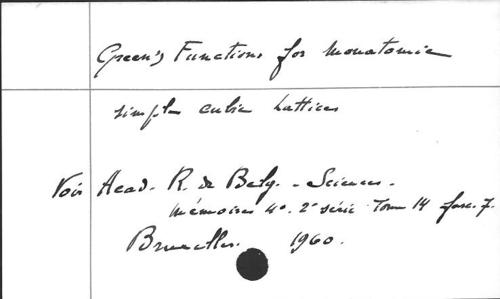 Green's Functions for Monatomic
simple cubic Lattices
Voir Acad. R. de Belg. - Sciences -
Mémoires 4o. 2e série Tome 14 fasc. 7.
Bruxelles. 1960.